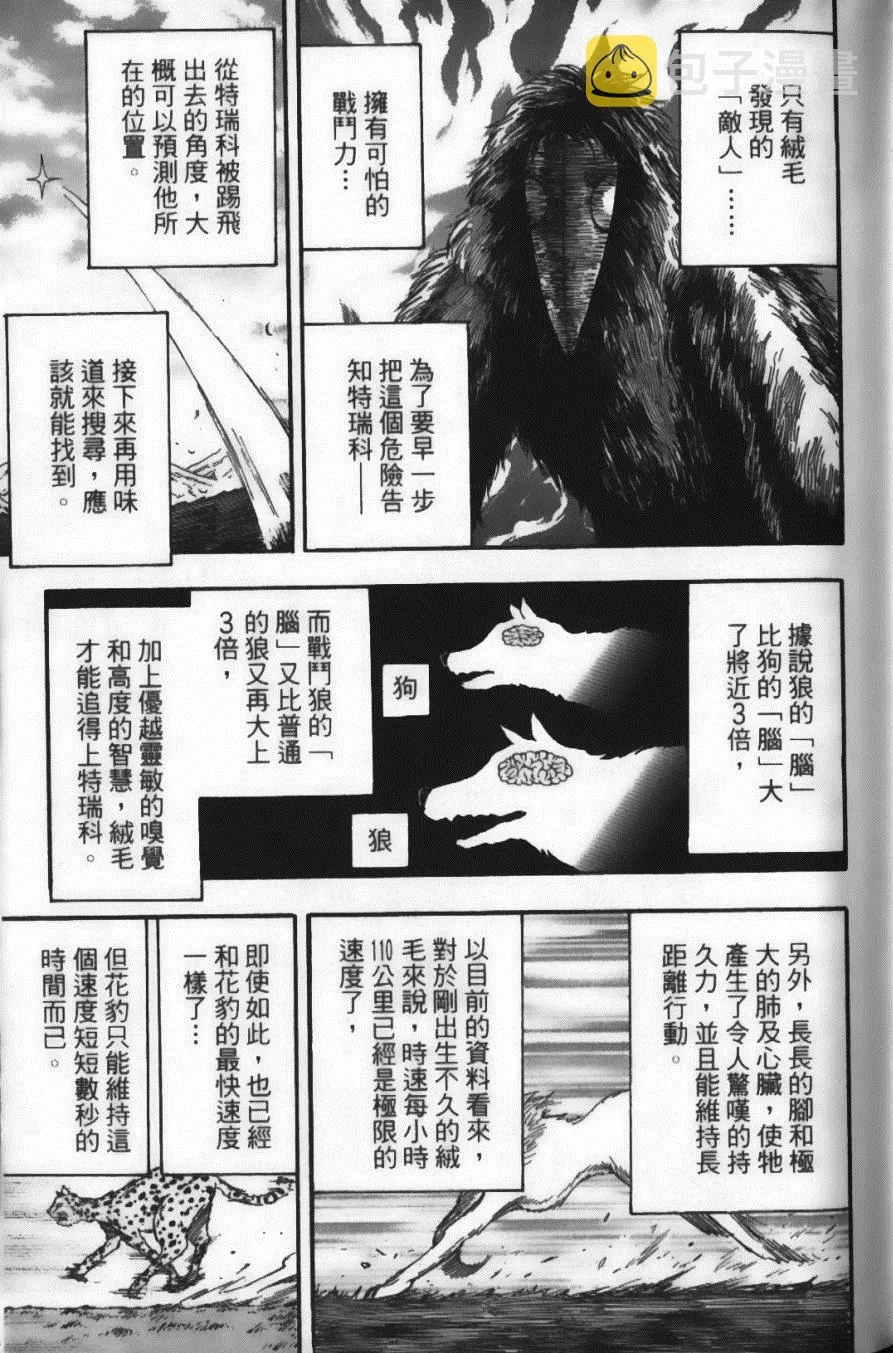 包子漫畫
只有絨毛
發現的
「敵人」……
擁有可怕的
戰鬥力…
為了要早一步
把這個危險告
知特瑞科——
從特瑞科被踢飛
出去的角度，大
概可以預測他所
在的位置。
接下來再用味
道來搜尋，應
該就能找到。
據說狼的「腦」
比狗的「腦」大
了將近3倍，
狗
狼
而戰鬥狼的「
腦」又比普通
的狼又再大上
3倍，
加上優越靈敏的嗅覺
和高度的智慧，絨毛
才能追得上特瑞科。
另外，長長的腳和極
大的肺及心臟，使牠
產生了令人驚嘆的持
久力，並且能維持長
距離行動。
以目前的資料看來，
對於剛出生不久的絨
毛來說，時速每小時
110公里已經是極限的
速度了，
即使如此，也已經
和花豹的最快速度
一樣了…
但花豹只能維持這
個速度短短數秒的
時間而已。